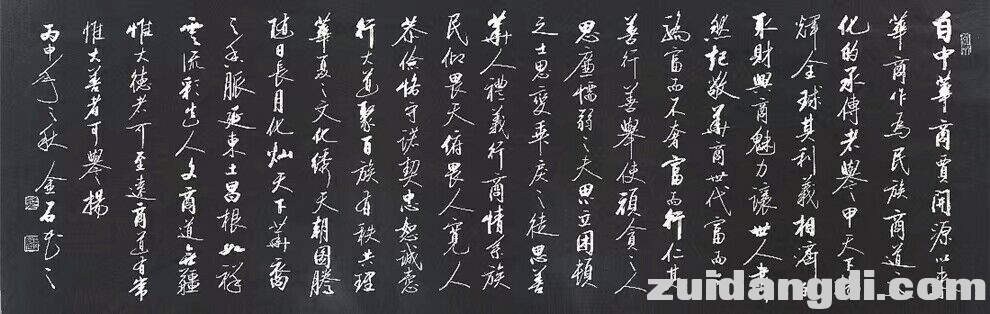 自中華商賈開源以來
華商作為民族商道文
化的承傳者譽甲天下
輝全球其利義相濟
取財興商魅力讓世人肅
然起敬華商世代富而
驕富而不奢富而行仁其
善行善舉使頑貪之人
思廉懦弱之夫思立困頓
之士思變乖戾之徒思善
華人禮義行商情系族
民仰畏天俯畏人寬人
恭儉恪守諾契忠恕誠意
行大道聚百族有秩共理
華夏之文化綉天朝圖騰
隨日長月化燦天下華裔
之血脈延東土昌根如祥
雲流彩生人文商道無疆
惟大德者可至遠商道有常
惟大善者可譽揚
丙申年之秋金石書之
zuidangdi.com